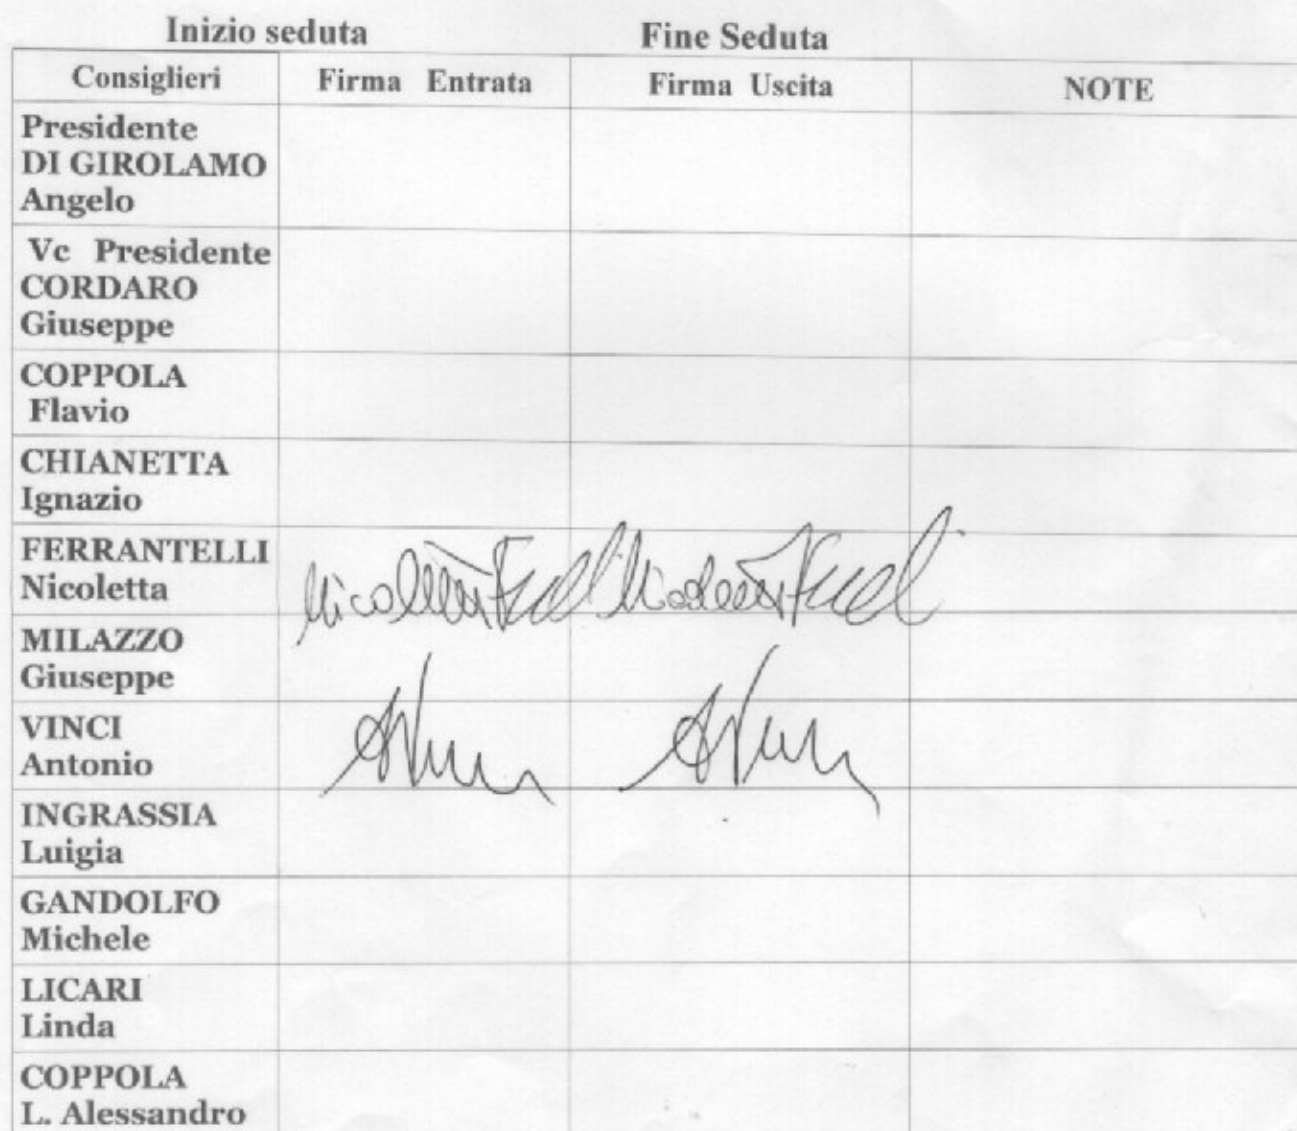 Inizio seduta Fine Seduta
Consiglieri Firma Entrata Firma Uscita NOTE
Presidente
DI GIROLAMO
Angelo
Vc Presidente
CORDARO
Giuseppe
COPPOLA
Flavio
CHIANETTA
Ignazio
FERRANTELLI
Nicoletta
MILAZZO
Giuseppe
VINCI
Antonio
INGRASSIA
Luigia
GANDOLFO
Michele
LICARI
Linda
COPPOLA
L. Alessandro